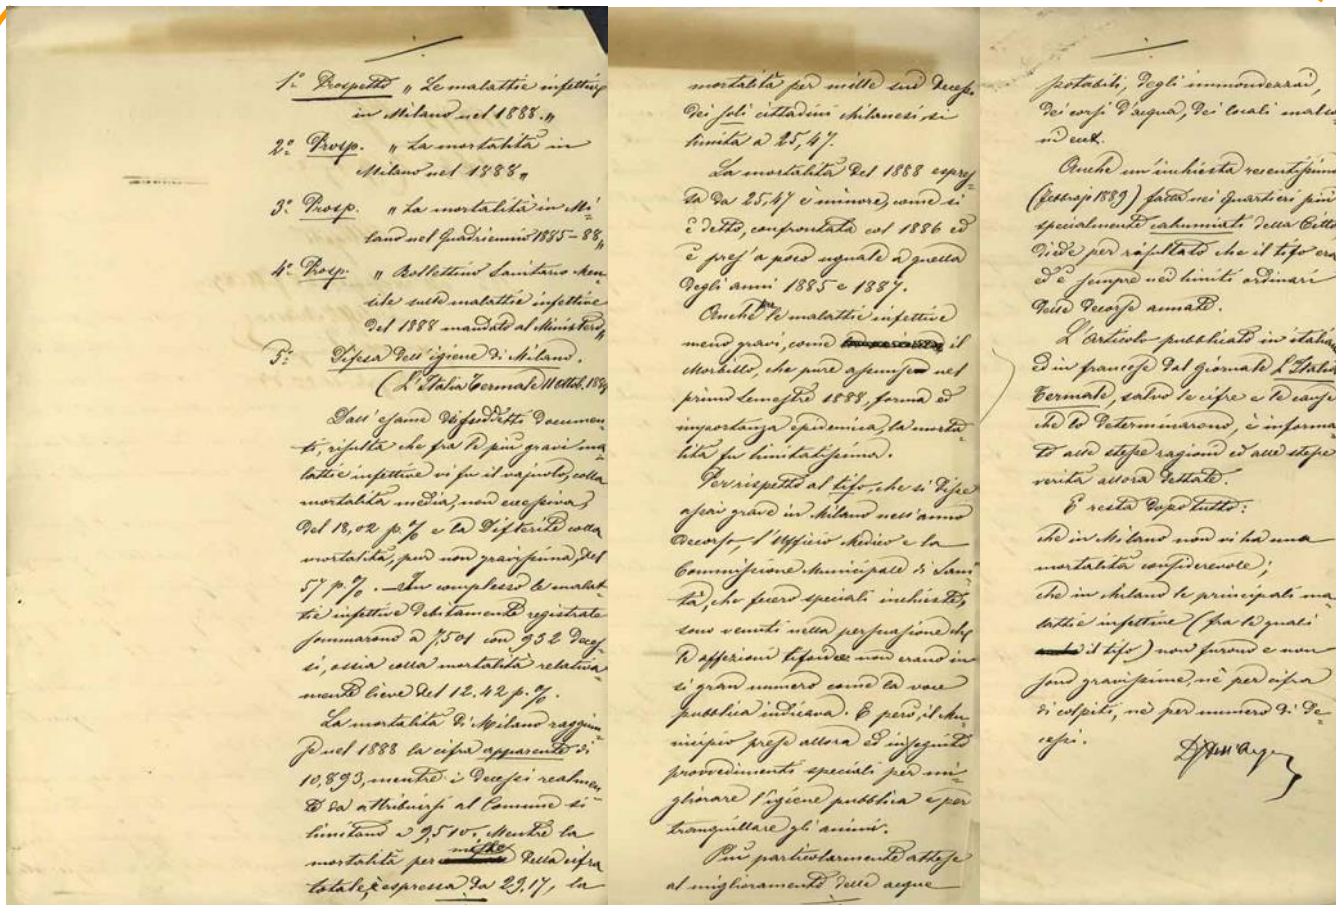 1.° Prospetto „ Le malattie infettive
in Milano nel 1888. „
2.° Prosp. „ La mortalità in
Milano nel 1888 „
3.° Prosp. „ La mortalità in Mi-
lano nel Quadriennio 1885-88 „
4.° Prosp. „ Bollettino Sanitario Men-
sile sulle malattie infettive
del 1888 mandato al Ministero „
5.° Difesa dell'igiene di Milano.
(L'Italia Termale 11 Ottob. 1889
Dall'esame dei suddetti documen-
ti, risulta che fra le più gravi ma-
lattie infettive vi fu il vajuolo, colla
mortalità media, non eccessiva,
del 18,02 p.% e la Difterite colla
mortalità, pur non gravissima, del
57 p.%. - In complesso le malat-
tie infettive debitamente registrate
sommarono a 7,501 con 932 deces-
si, ossia colla mortalità relativa-
mente lieve del 12.42 p.%.
La mortalità di Milano raggiun-
se nel 1888 la cifra apparente di
10,893, mentre i decessi realmen-
te da attribuirsi al Comune si
limitano a 9,510. Mentre la
mortalità per mille della cifra
totale, è espressa da 29,17, la
mortalità per mille sui decessi
dei soli cittadini Milanesi, si
limita a 25,47.
La mortalità del 1888 espres-
sa da 25,47 è minore, come si
è detto, confrontata col 1886 ed
è pres' a poco uguale a quella
degli anni 1885 e 1887.
Anche tra le malattie infettive
meno gravi, come il
Morbillo, che pure assunse nel
primo Semestre 1888, forma ed
importanza epidemica, la morta-
lità fu limitatissima.
Per rispetto al tifo, che si disse
assai grave in Milano nell'anno
decorso, l'Ufficio Medico e la
Commissione Municipale di Sani-
tà, che fecero speciali inchieste,
sono venuti nella persuasione che
le affezioni tifoidee non erano in
sì gran numero come la voce
pubblica indicava. E però, il Mu-
nicipio prese allora ed in seguito
provvedimenti speciali per mi-
gliorare l'igiene pubblica e per
tranquillare gli animi.
Più particolarmente attese
al miglioramento delle acque
potabili, degli immondezzai,
dei corsi d'acqua, dei locali malsa-
ni ecc.
Anche un'inchiesta recentissima
(febbrajo 1889) fatta nei quartieri più
specialmente calunniati della Città
diede per risultato che il tifo era
ed è sempre nei limiti ordinari
delle decorse annate.
L'articolo pubblicato in italiano
ed in francese dal giornale L'Italia
Termale, salvo le cifre e le cause
che lo determinarono, è informa-
to alle stesse ragioni ed alle stesse
verità allora dettate.
E resta dopo tutto:
che in Milano non vi ha una
mortalità considerevole;
che in Milano le principali ma-
lattie infettive (fra le quali
il tifo) non furono e non
sono gravissime, nè per cifra
di colpiti, nè per numero di de-
cessi.